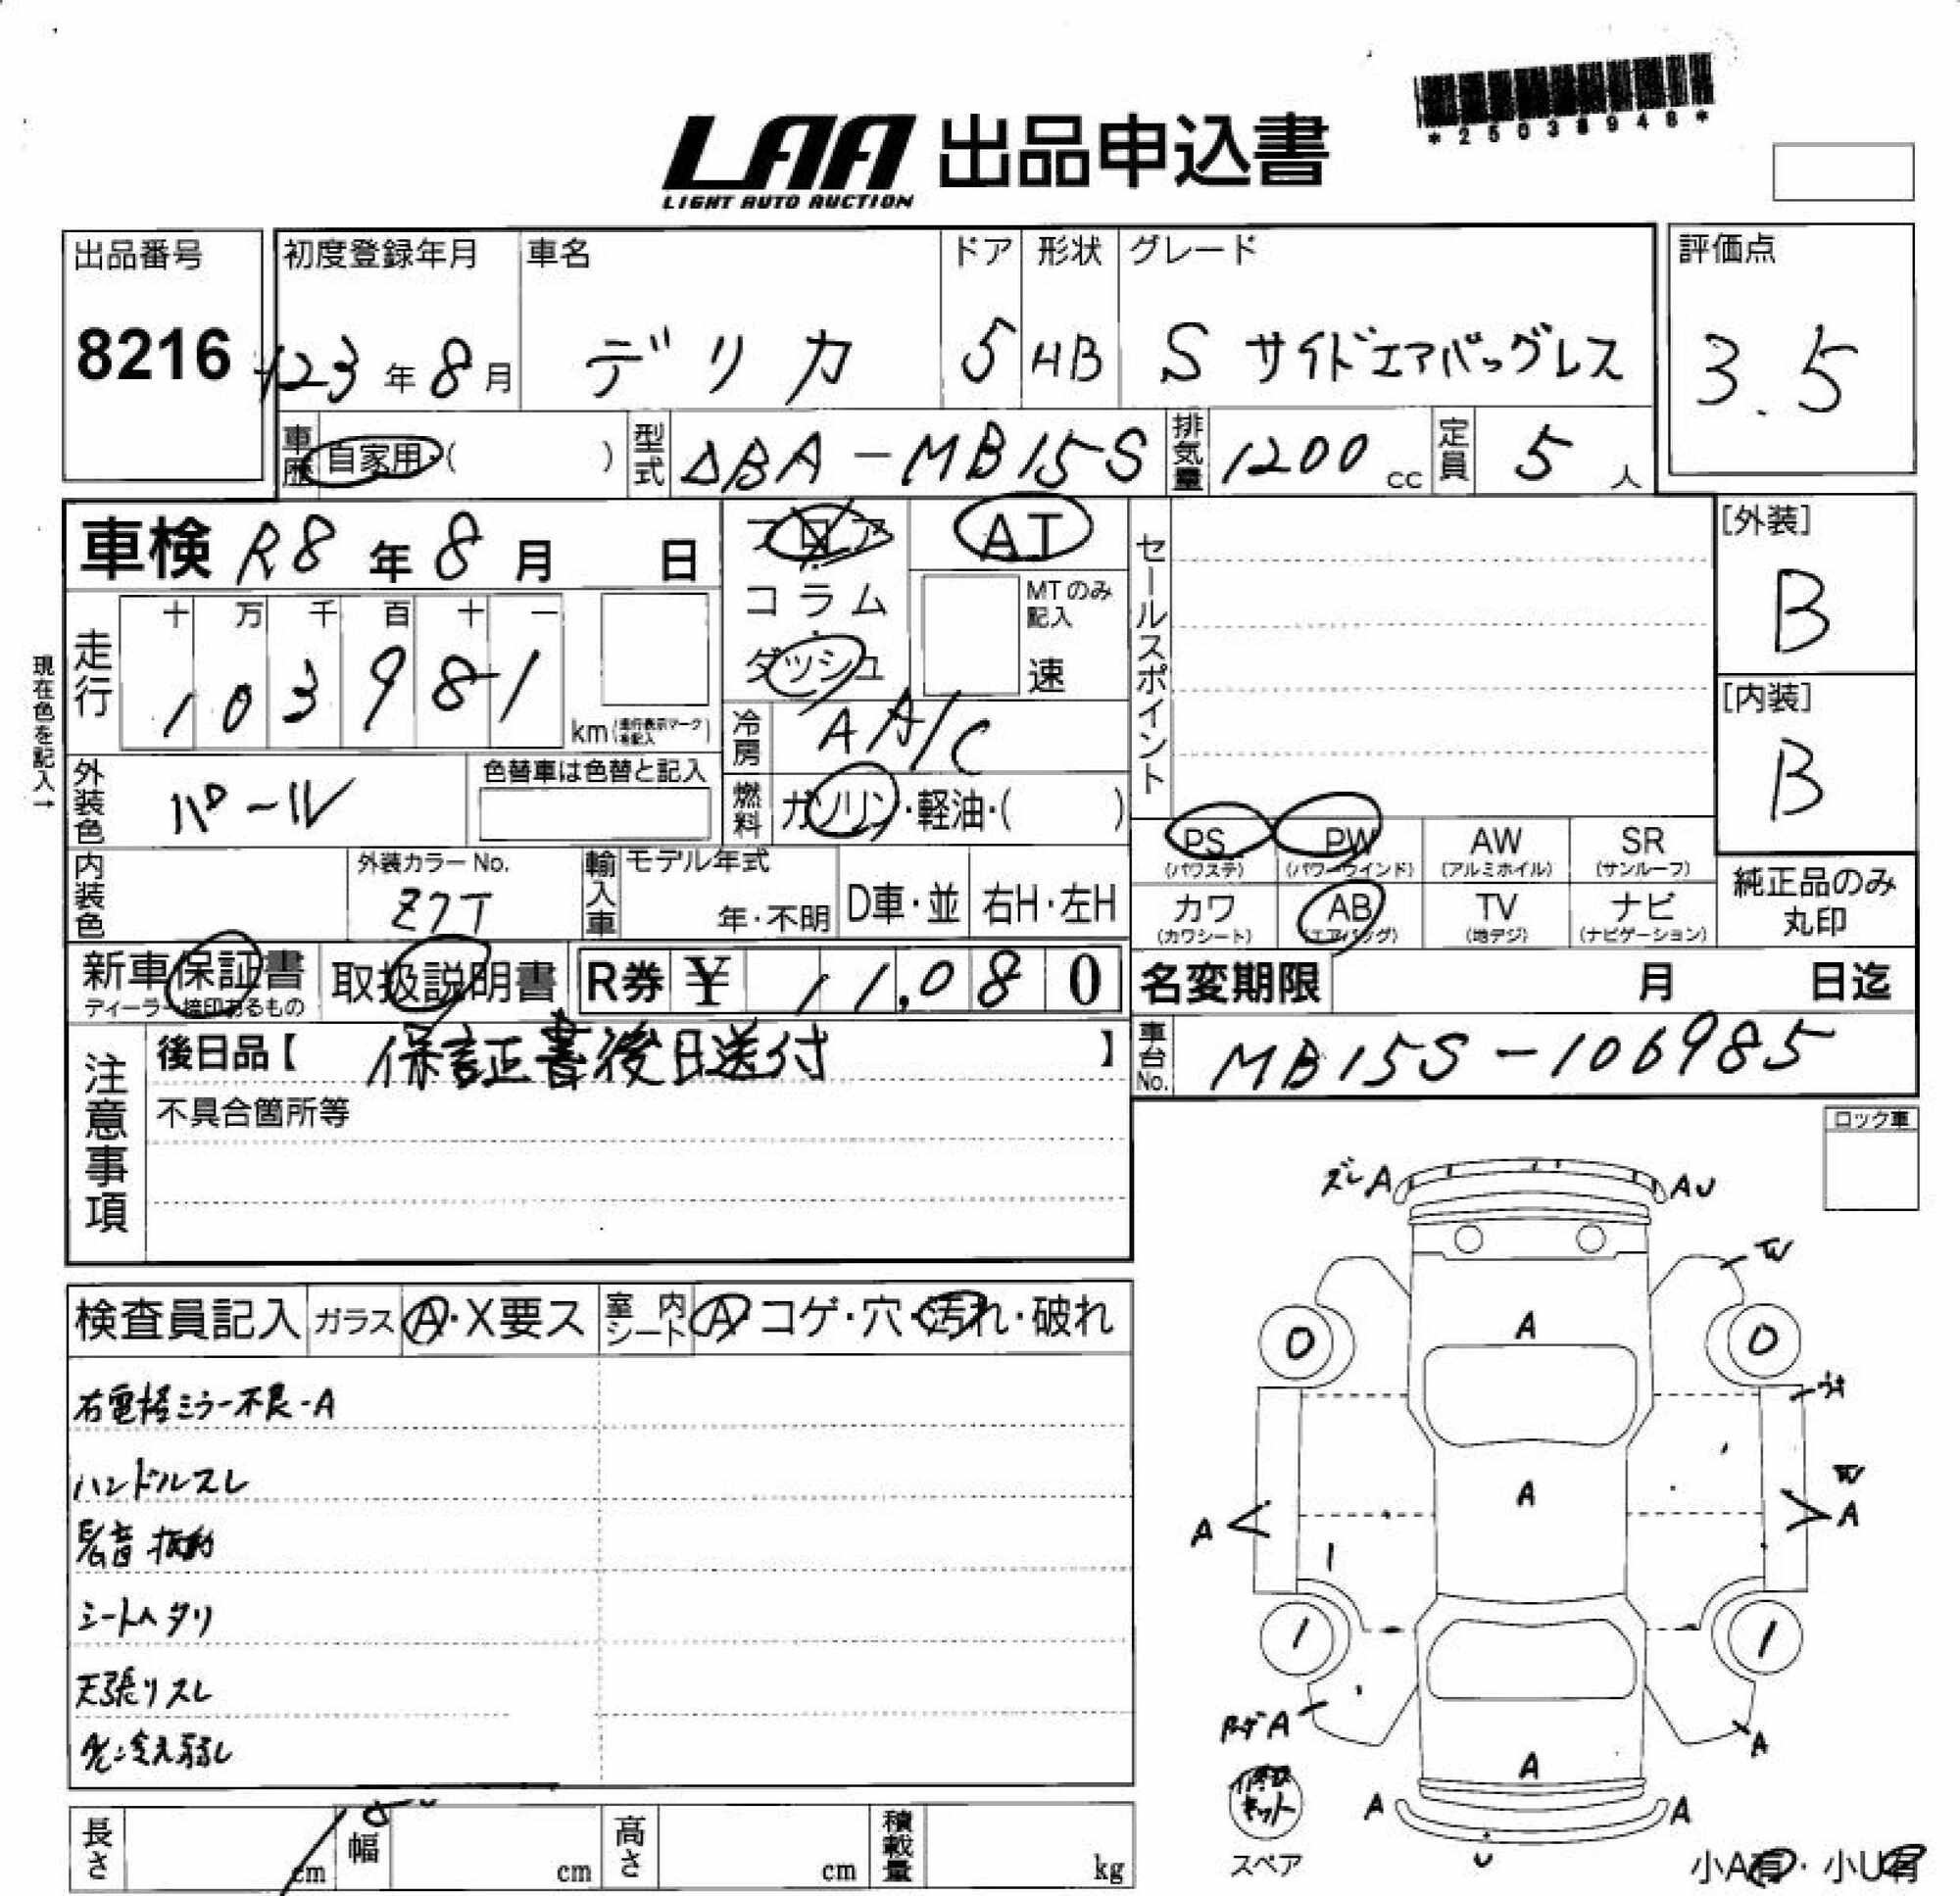 *25038948*
LAA 出品申込書
LIGHT AUTO AUCTION
出品番号 初度登録年月 車名 ドア 形状 グレード 評価点
8216 H23年8月 デリカ 5 HB S サイドエアバッグレス 3.5
車歴 自家用・( ) 型式 DBA-MB15S 排気量 1200cc 定員 5人
車検 R8年8月 日 フロア AT セールスポイント [外装]
B
コラム MTのみ記入
走行 十 万 千 百 十 一
1 0 3 9 8 1 km(走行表示マーク有記入) ダッシュ 速 [内装]
B
現在色を記入→
冷房 AA/C
外装色 パール 色替車は色替と記入 燃料 ガソリン・軽油・( )
PS PW AW SR
(パワステ) (パワーウインド) (アルミホイル) (サンルーフ)
内装色 外装カラーNo. 輸入車 モデル年式 純正品のみ丸印
Z7T 年・不明 D車・並 右H・左H カワ AB TV ナビ
(カワシート) (エアバッグ) (地デジ) (ナビゲーション)
新車保証書 取扱説明書 R券 ¥ 11,080 名変期限 月 日迄
ディーラー捺印あるもの
注意事項 後日品【 保証書後日送付 】 車台No. MB15S-106985
不具合箇所等
ロック車
ズレA AU
W
検査員記入 ガラス A・X要ス 室内シート A コゲ・穴・汚れ・破れ
A
0 0
右電格ミラー不良-A
ハンドルスレ
A
W
A A
1
シートヘタリ
1 1
天張りスレ
A
A
A/C冷え弱し
A
修理キット A A
U
スペア
長さ cm 幅 cm 高さ cm 積載量 kg
小A有・小U有